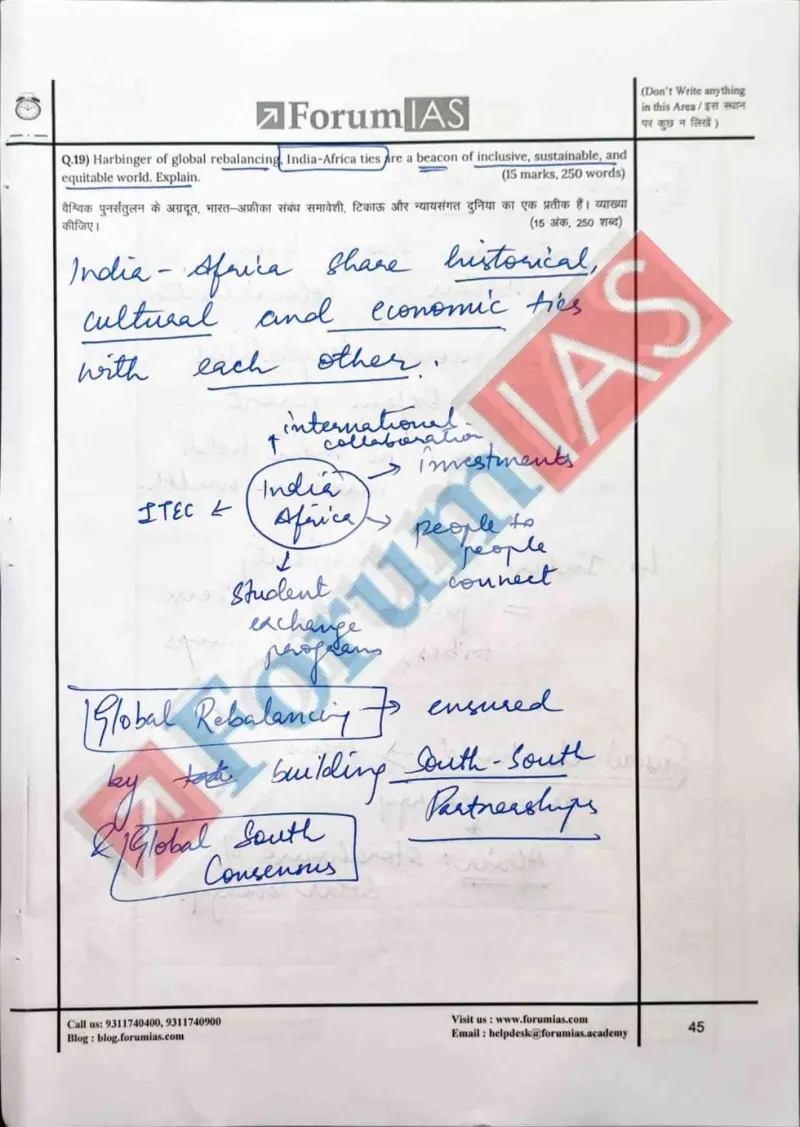 ForumIAS
(Don't Write anything
in this Area / इस स्थान
पर कुछ न लिखें )
Q.19) Harbinger of global rebalancing, India-Africa ties are a beacon of inclusive, sustainable, and
equitable world. Explain. (15 marks, 250 words)
वैश्विक पुनर्संतुलन के अग्रदूत, भारत-अफ्रीका संबंध समावेशी, टिकाऊ और न्यायसंगत दुनिया का एक प्रतीक हैं। व्याख्या
कीजिए। (15 अंक, 250 शब्द)
India - Africa share historical,
cultural and economic ties
with each other.
international
collaboration
India
Africa
→ investments
ITEC ←
→ people to
people
connect
↓
Student
exchange
programs
Global Rebalancing → ensured
by building South-South
Partnerships
& Global South
Consensus
ForumIAS
Call us: 9311740400, 9311740900
Blog : blog.forumias.com
Visit us : www.forumias.com
Email : helpdesk@forumias.academy
45